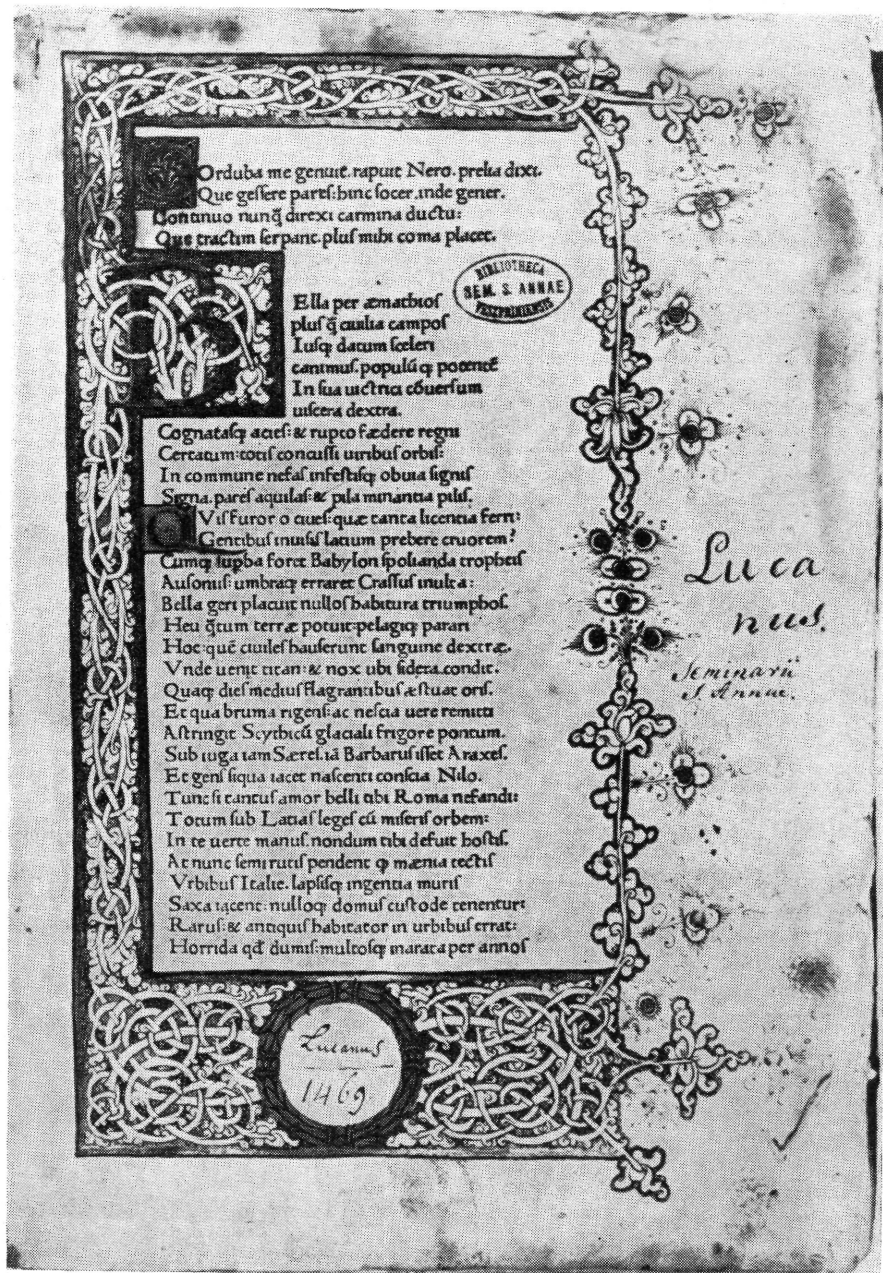 COrduba me genuit. rapuit Nero. prelia dixi.
Que gessere pares: hinc socer. inde gener.
Continuo nunq̃ direxi carmina ductu:
Que tractim serpant. plus mihi coma placet.
BElla per æmathios
plus q̃ ciuilia campos
Iusq; datum sceleri
canimus. populũ q; potentẽ
In sua uictrici cõuersum
uiscera dextra.
Cognatasq; acies: & rupto fædere regni
Certatum: totis concussi uiribus orbis:
In commune nefas infestisq; obuia signis
Signa. pares aquilas: & pila minantia pilis.
QVis furor o ciues: quæ tanta licentia ferri:
Gentibus inuisis latium prebere cruorem?
Cumq; supba foret Babylon spolianda tropheis
Ausoniis: umbraq; erraret Crassus inulta:
Bella geri placuit nullos habitura triumphos.
Heu q̃tum terræ potuit: pelagiq; parari
Hoc: quẽ ciuiles hauserunt sanguine dextræ.
Vnde uenit titan: & nox ubi sidera condit.
Quaq; dies medius flagrantibus æstuat oris.
Et qua bruma rigens: ac nescia uere remitti
Astringit Scythicũ glaciali frigore pontum.
Sub iuga iam Særes. iã Barbarus isset Araxes.
Et gens siqua iacet nascenti conscia Nilo.
Tunc si tantus amor belli tibi Roma nefandi:
Totum sub Latias leges cũ miseris orbem:
In te uerte manus. nondum tibi defuit hostis.
At nunc semirutis pendent q; mænia tectis
Vrbibus Italie. lapsisq; ingentia muris
Saxa iacent: nulloq; domus custode tenentur:
Rarus: & antiquis habitator in urbibus errat:
Horrida qđ dumis: multosq; inarata per annos
BIBLIOTHECA
SEM. S. ANNAE
VESZPRIMIENSIS
Luca
nus.
Seminarii
S. Annae.
Lucanus
1469.